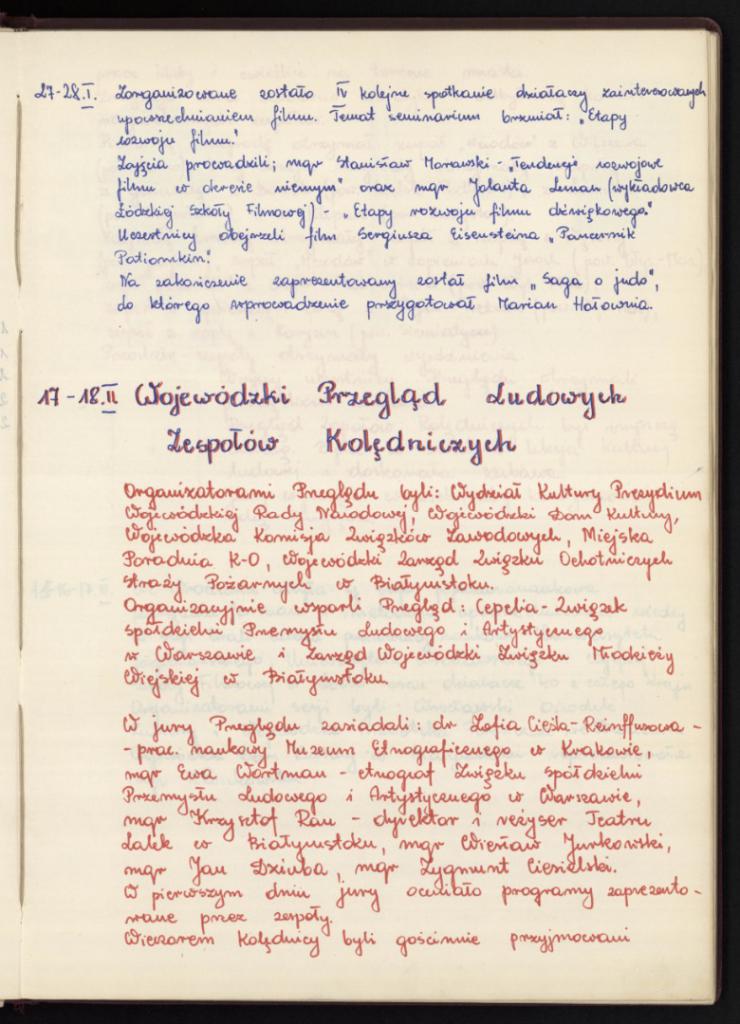 27-28.I. Zorganizowane zostało IV kolejne spotkanie działaczy zainteresowanych
upowszechnianiem filmu. Temat seminarium brzmiał: „Etapy
rozwoju filmu."
Zajęcia prowadzili; mgr Stanisław Morawski - „Tendencje rozwojowe
filmu w okresie niemym" oraz mgr Jolanta Leman (wykładowca
Łódzkiej Szkoły Filmowej) - „Etapy rozwoju filmu dźwiękowego."
Uczestnicy obejrzeli film Sergiusza Eisensteina „Pancernik
Potiomkin."
Na zakończenie zaprezentowany został film „Saga o judo",
do którego wprowadzenie przygotował Marian Hołownia.
17-18.II Wojewódzki Przegląd Ludowych
Zespołów Kolędniczych
Organizatorami Przeglądu byli: Wydział Kultury Prezydium
Wojewódzkiej Rady Narodowej, Wojewódzki Dom Kultury,
Wojewódzka Komisja Związków Zawodowych, Miejska
Poradnia K-O, Wojewódzki Zarząd Związku Ochotniczych
Straży Pożarnych w Białymstoku.
Organizacyjnie wsparli Przegląd: Cepelia - Związek
Spółdzielni Przemysłu Ludowego i Artystycznego
w Warszawie i Zarząd Wojewódzki Związku Młodzieży
Wiejskiej w Białymstoku.
W jury Przeglądu zasiadali: dr Zofia Cieśla-Reinffusowa -
- prac. naukowy Muzeum Etnograficznego w Krakowie,
mgr Ewa Wortman - etnograf Związku spółdzielni
Przemysłu Ludowego i Artystycznego w Warszawie,
mgr Krzysztof Rau - dyrektor i reżyser Teatru
Lalek w Białymstoku, mgr Wiesław Jurkowski,
mgr Jan Dziuba, mgr Zygmunt Ciesielski.
W pierwszym dniu jury oceniało programy zaprezento-
wane przez zespoły.
Wieczorem kolędnicy byli gościnnie przyjmowani